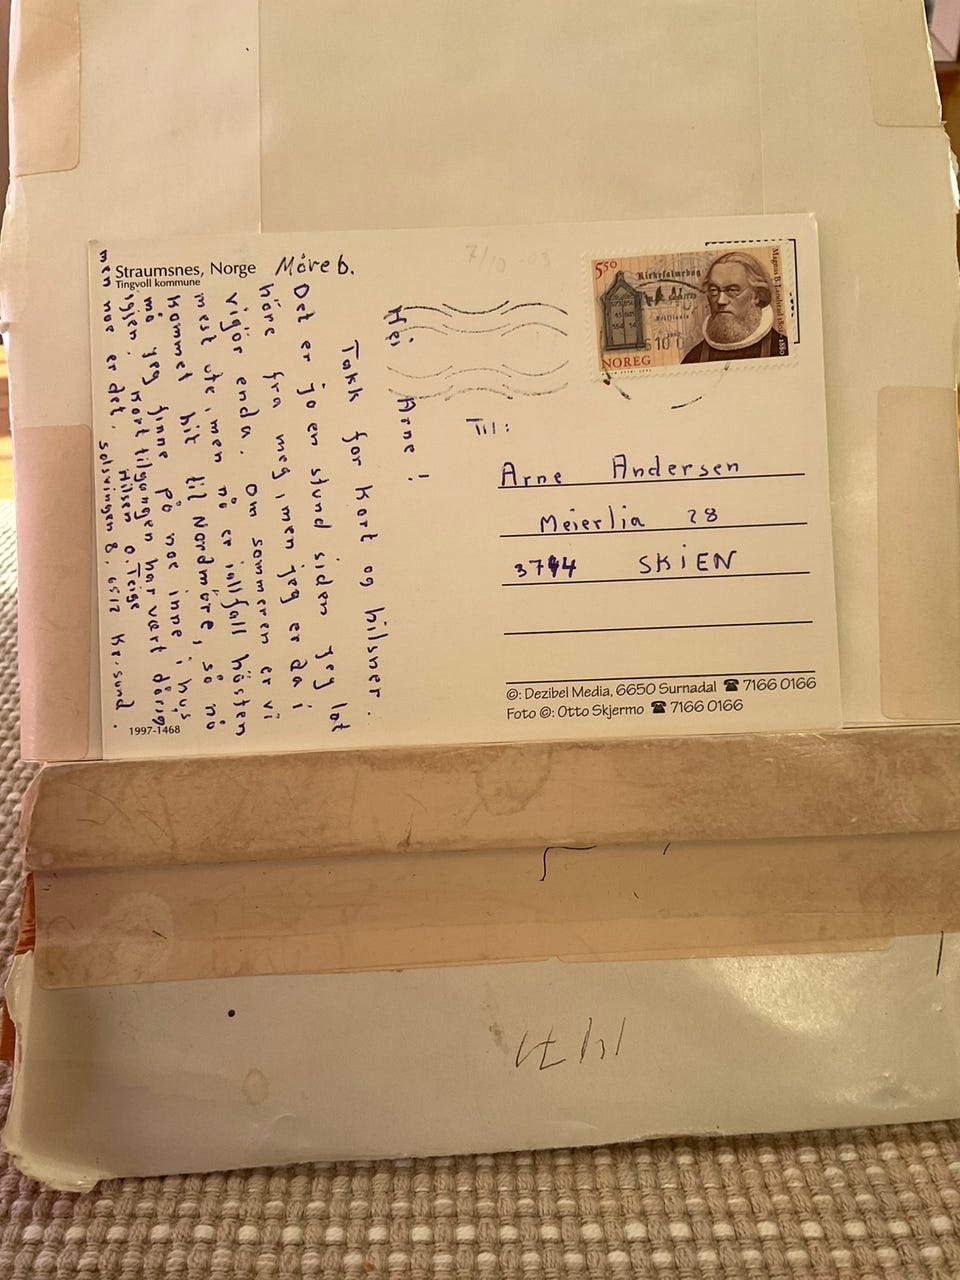 Straumsnes, Norge Møreb.
Tingvoll kommune
Hei Arne!
Takk for kort og hilsner.
Det er jo en stund siden jeg lot
høre fra meg, men jeg er da i
vigør enda. Om sommeren er vi
mest ute, men nå er iallfall høsten
kommet hit til Nordmøre, så nå
må jeg finne på noe inne i hus
igjen. Kort tilgangen har vært dårig
men noe er det. Hilsen O. Teige
Solsvingen 8, 6512 Kr.sund.
1997-1468
7/10-03
550
Kirkesalmebog
NOREG
10 03
Til:
Arne Andersen
Meierlia 28
3744 SKIEN
©: Dezibel Media, 6650 Surnadal ☎ 7166 0166
Foto ©: Otto Skjermo ☎ 7166 0166